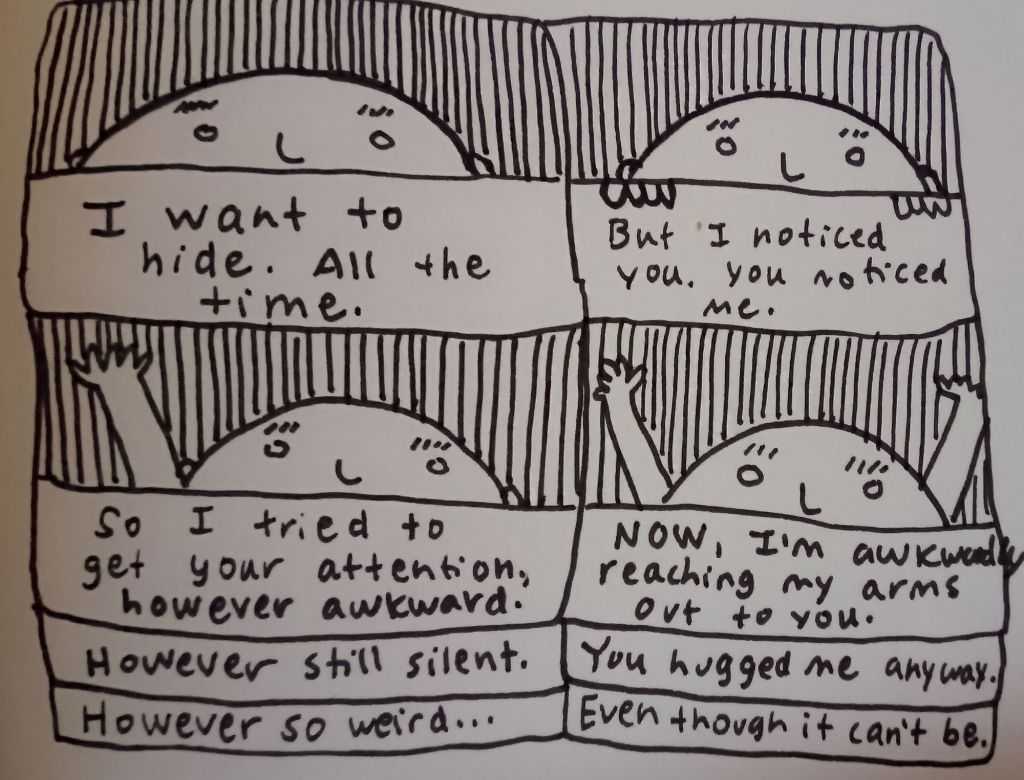 I want to
hide. All the
time.
But I noticed
you. You noticed
me.
So I tried to
get your attention,
however awkward.
However still silent.
However so weird...
NOW, I'm awkwardly
reaching my arms
out to you.
You hugged me anyway.
Even though it can't be.